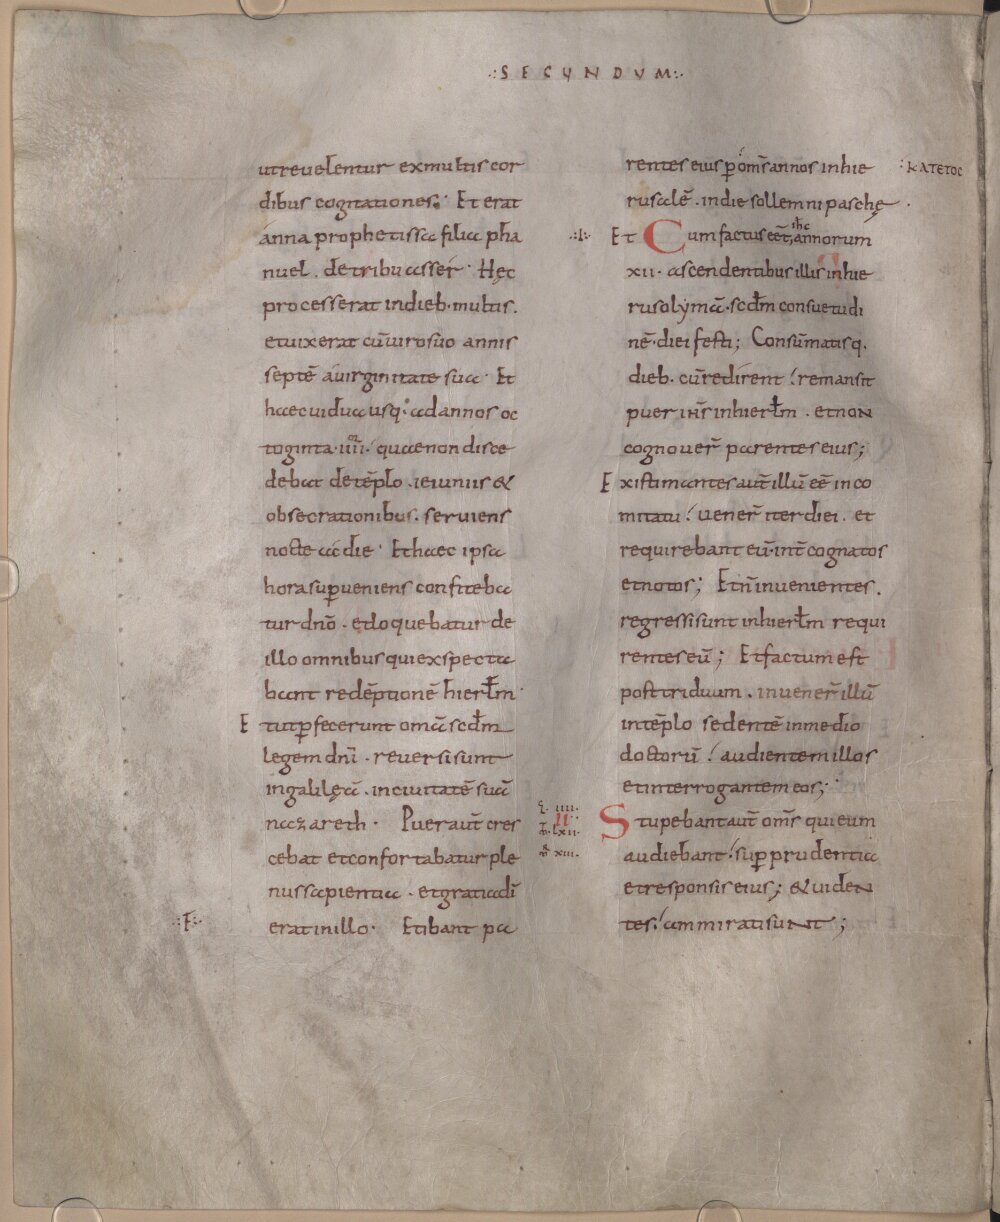 .:SECUNDUM:.
ut revelentur ex multis cor
dibus cogitationes. Et erat
anna prophetissa filia pha
nuel. de tribu asser. Hęc
processerat in dieb. multis.
et vixerat cū viro suo annis
septē a virginitate sua. Et
haec vidua usq. ad annos oc
toginta. iiii. quae non disce
debat de tēplo. ieiuniis &
obsecrationibus. serviens
nocte ac die. Et haec ipsa
hora superveniens confiteba
tur dnō. et loquebatur de
illo omnibus qui exspecta
bant redēptionē hierłm.
Et ut pfecerunt omā scdm
legem dnī. reversi sunt
in galilęā. in civitatē suā
nazareth. Puer aut̄ cres
cebat et confortabatur ple
nus sapientia. et gratia dī
erat in illo. Et ibant pa
.:F:.
rentes eius p om̄s annos in hie
rusalē. in die sollemni paschę.
:KATETOC
.:I:. Et Cum factus eēt ihc annorum
xii. ascendentibus illis in hie
rusolymā. scdm consuetudi
nē. diei festi; Consūmatisq.
dieb. cū redirent! remansit
puer ihs̄ in hierłm. et non
cognover̄ parentes eius;
Existimantes aut̄ illū eē in co
mitatu! vener̄ iter diei. et
requirebant eū. int̄ cognatos
et notos; Et n̄ invenientes.
regressi sunt in hierłm requi
rentes eū; Et factum est
post triduum. invener̄ illū
in tēplo sedentē in medio
doctorū! audientem illos
et interrogantem eos;
II
Stupebant aut̄ om̄s qui eum
audiebant! sup prudentia
et responsis eius; & viden
tes! ammirati sunt;